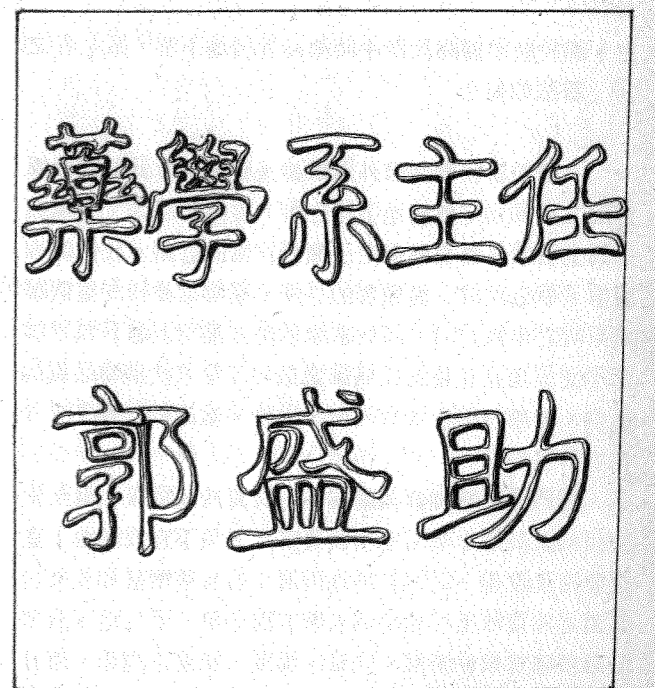 藥學系主任
郭盛助